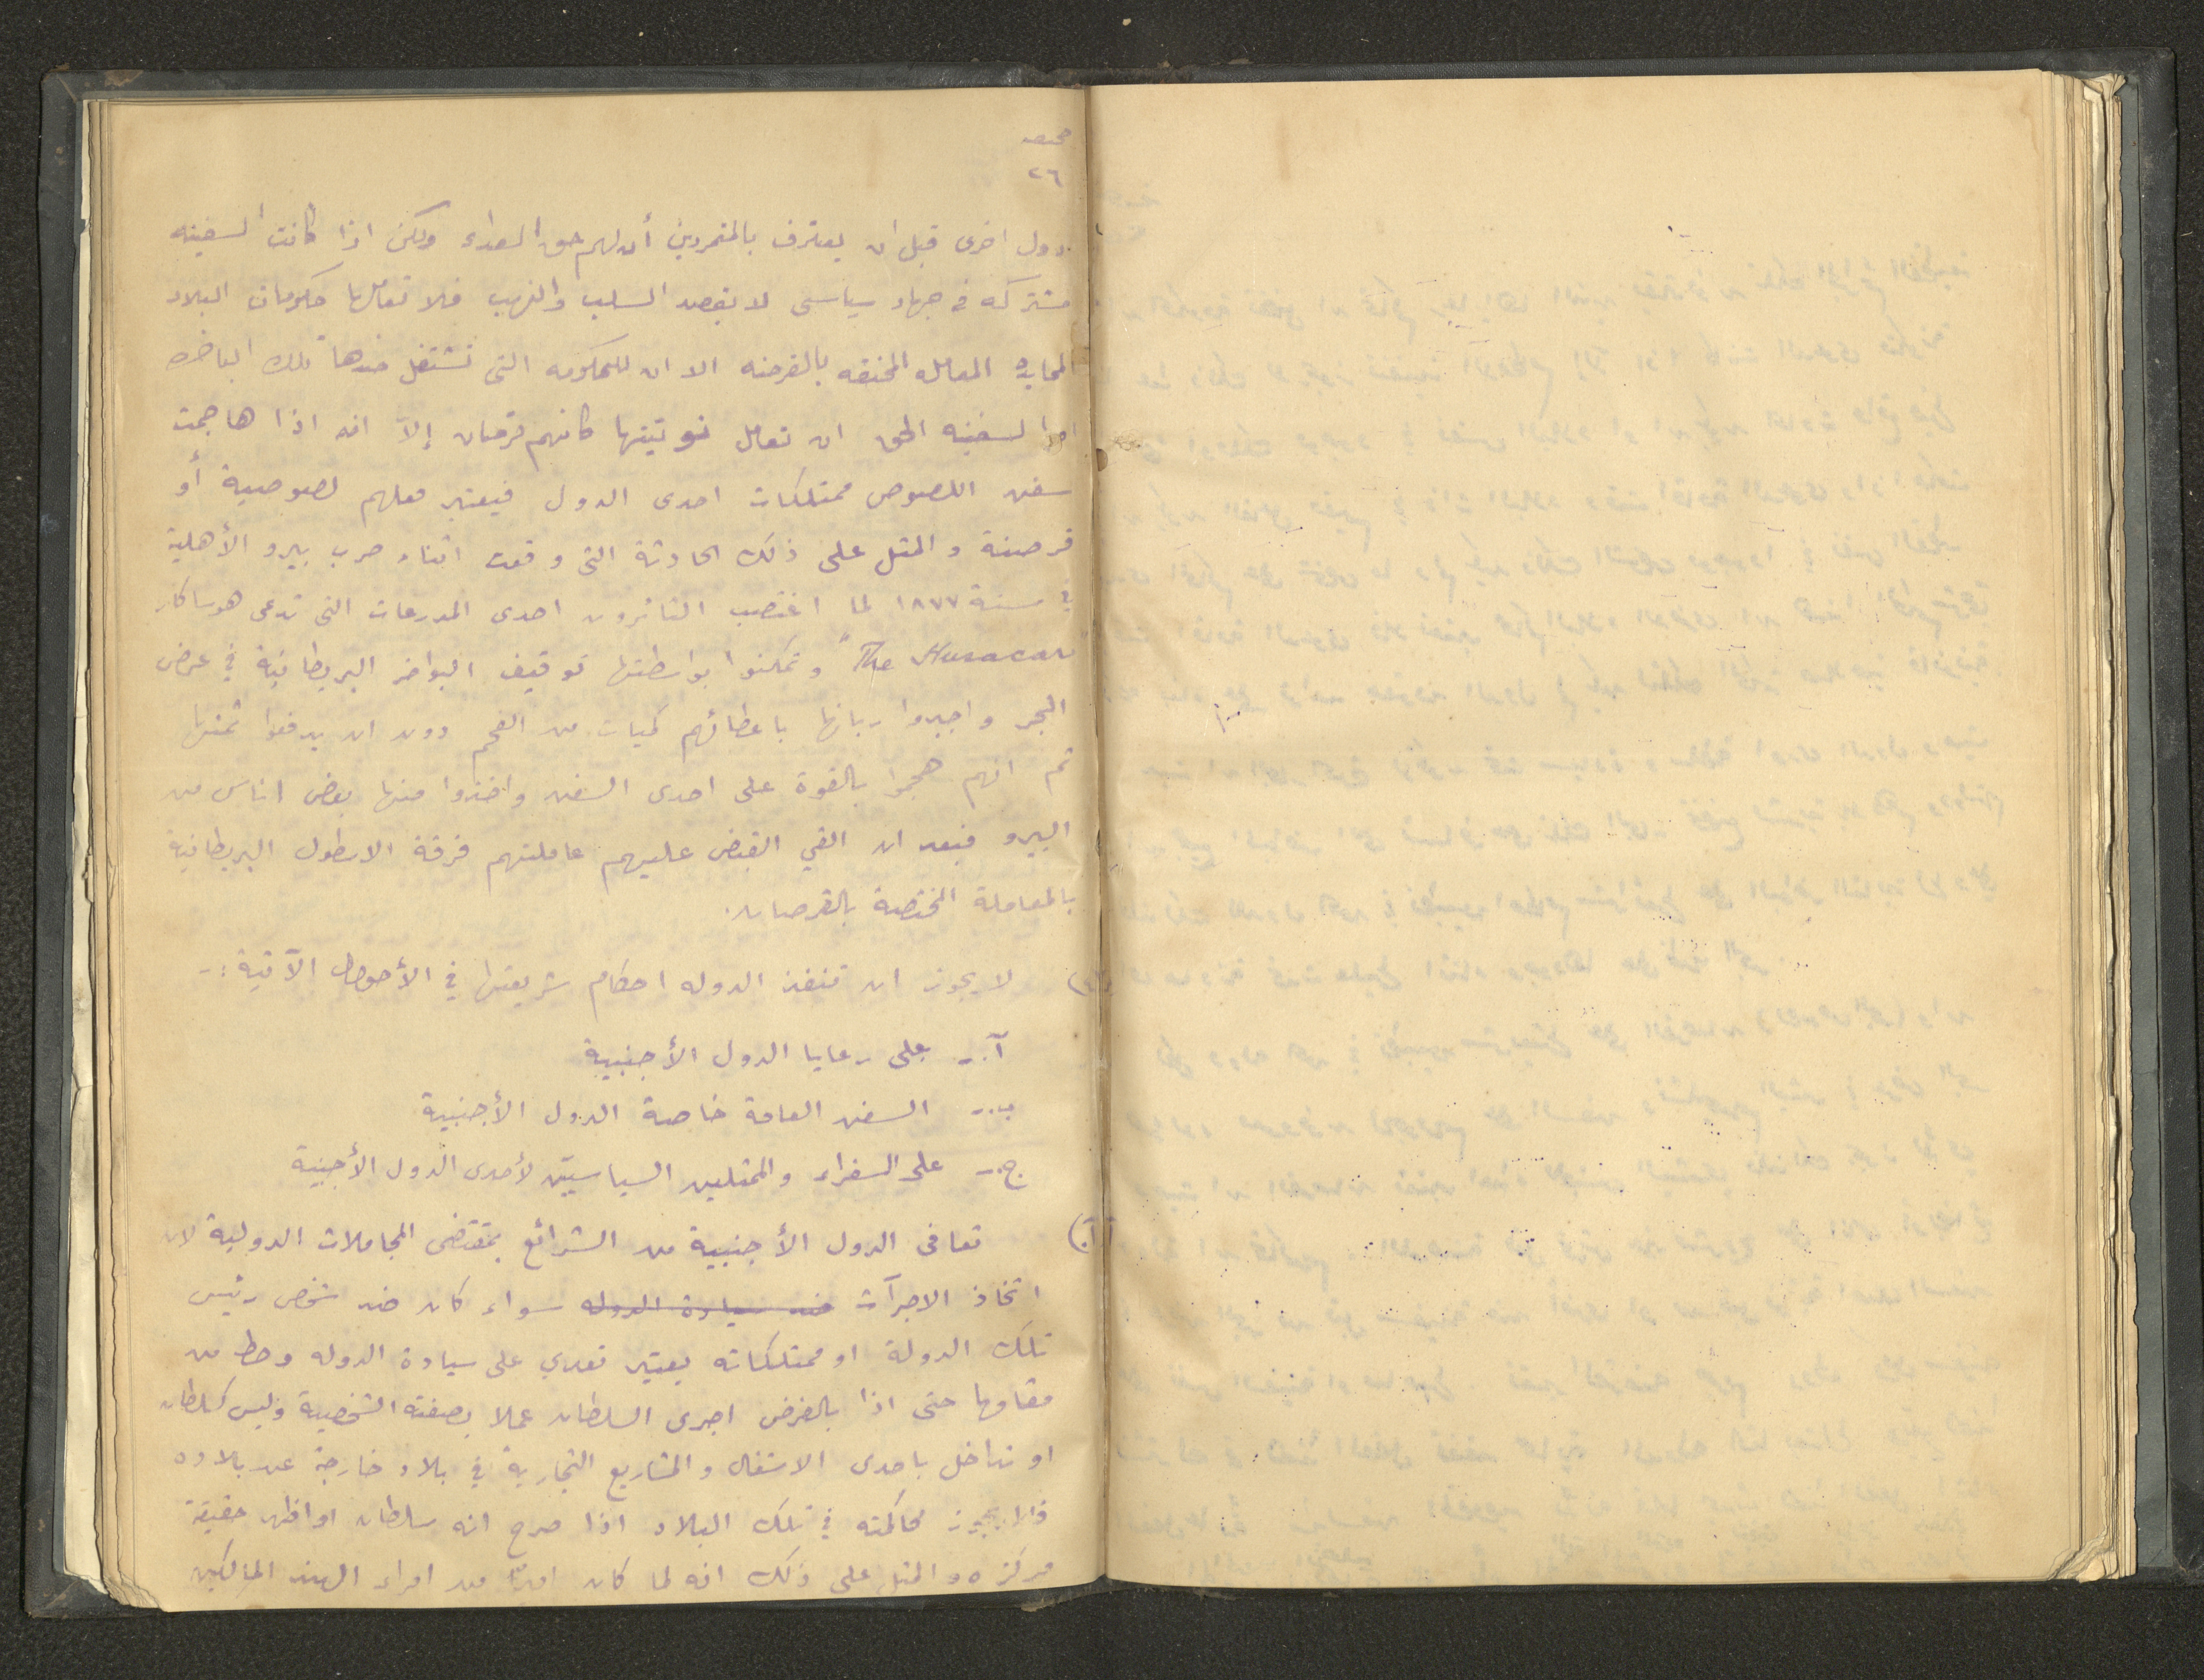 صحيفه
٢٦
دول اخرى قبل ان يعترف بالمتمردين أن لهم حق العداء ولكن اذا كانت السفينه
مشتركه في جهاد سياسي لا بقصد السلب والنهب فلا تعاملها حكومات البلاد
المحايده المعامله المختصه بالقرصنه الا ان للحكومه التي تشتغل ضدها تلك الباخره
او السفينه الحق ان تعامل نوتيتها كانهم قرصان إلاّ انه اذا هاجمت
سفن اللصوص ممتلكات احدى الدول فيعتبر فعلهم لصوصية أو
قرصنة والمثل على ذلك الحادثة التي وقعت اثناء حرب بيرو الأهلية
في سنة ١٨٧٧ لما اغتصب الثائرون احدى المدرعات التي تدعى هوساكار
"The Husacar" وتمكنوا بواسطتها توقيف البواخر البريطانية في عرض
البحر واجبروا ربانها باعطائهم كميات من الفحم دون ان يدفعوا ثمنها
ثم انهم هجموا بالقوة على احدى السفن واخذوا منها بعض اناس من
البيرو فبعد ان القي القبض عليهم عاملتهم فرقة الاسطول البريطانية
بالمعاملة المختصة بالقرصان.
لا يجوز ان تنفذ الدوله احكام شريعتها في الأحوال الآتية :-
آ.- على رعايا الدول الأجنبية
ب.- السفن العامة خاصة الدول الأجنبية
ج.- على السفراء والممثلين السياسيين لأحدى الدول الأجنبية
آ) تعافى الدول الأجنبية من الشرائع بمقتضى المجاملات الدولية لان
اتخاذ الاجرآت ضد سيادة الدوله سواء كان ضد شخص رئيس
تلك الدولة او ممتلكاته يعتبر تعدي على سيادة الدوله وحط من
مقامها حتى اذا بالفرض اجرى السلطان عملا بصفته الشخصية وليس كسلطان
او تداخل باحدى الاشغال والمشاريع التجارية في بلاد خارجة عن بلاده
فلا يجوز محاكمته في تلك البلاد اذا صرح انه سلطان او اظهر حقيقة
مركزه والمثل على ذلك انه لما كان امير من امراء الهند المالكين